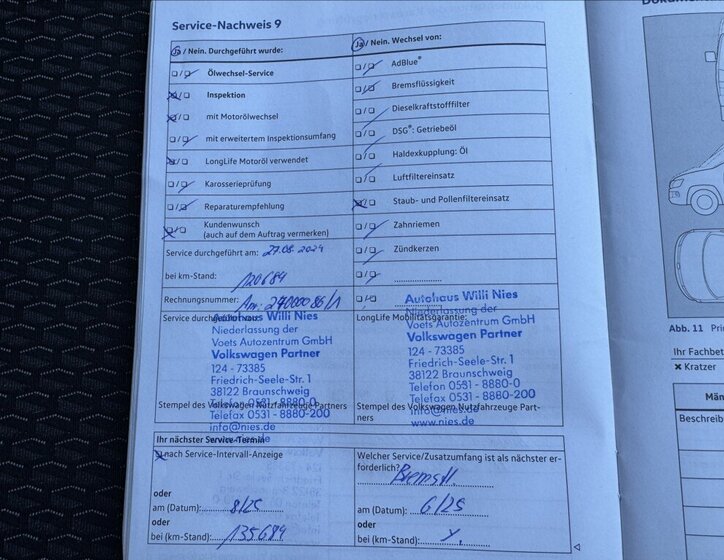 Service-Nachweis 9
Ja / Nein. Durchgeführt wurde:
Ölwechsel-Service
Inspektion
mit Motorölwechsel
mit erweitertem Inspektionsumfang
LongLife Motoröl verwendet
Karosserieprüfung
Reparaturempfehlung
Kundenwunsch
(auch auf dem Auftrag vermerken)
Service durchgeführt am: 27.08.2024
bei km-Stand: 120684
Rechnungsnummer:
Service durchgeführt
Autohaus Willi Nies
Niederlassung der
Voets Autozentrum GmbH
Volkswagen Partner
124 - 73385
Friedrich-Seele-Str. 1
38122 Braunschweig
Telefon 0531 - 8880-0
Telefax 0531 - 8880-200
info@nies.de
www.nies.de
Stempel des Volkswagen Nutzfahrzeuge Partners
Ja / Nein. Wechsel von:
AdBlue®
Bremsflüssigkeit
Dieselkraftstofffilter
DSG®: Getriebeöl
Haldexkupplung: Öl
Luftfiltereinsatz
Staub- und Pollenfiltereinsatz
Zahnriemen
Zündkerzen
LongLife Mobilitätsgarantie:
Autohaus Willi Nies
Niederlassung der
Voets Autozentrum GmbH
Volkswagen Partner
124 - 73385
Friedrich-Seele-Str. 1
38122 Braunschweig
Telefon 0531 - 8880-0
Telefax 0531 - 8880-200
info@nies.de
www.nies.de
Stempel des Volkswagen Nutzfahrzeuge Part-
ners
Ihr nächster Service-Termin
nach Service-Intervall-Anzeige
oder
am (Datum): 8/25
oder
bei (km-Stand): 135684
Welcher Service/Zusatzumfang ist als nächster er-
forderlich? Bremsfl.
oder
am (Datum): 6/25
oder
bei (km-Stand):
Abb. 11
Ihr Fachbet
Kratzer
Män
Beschreibe